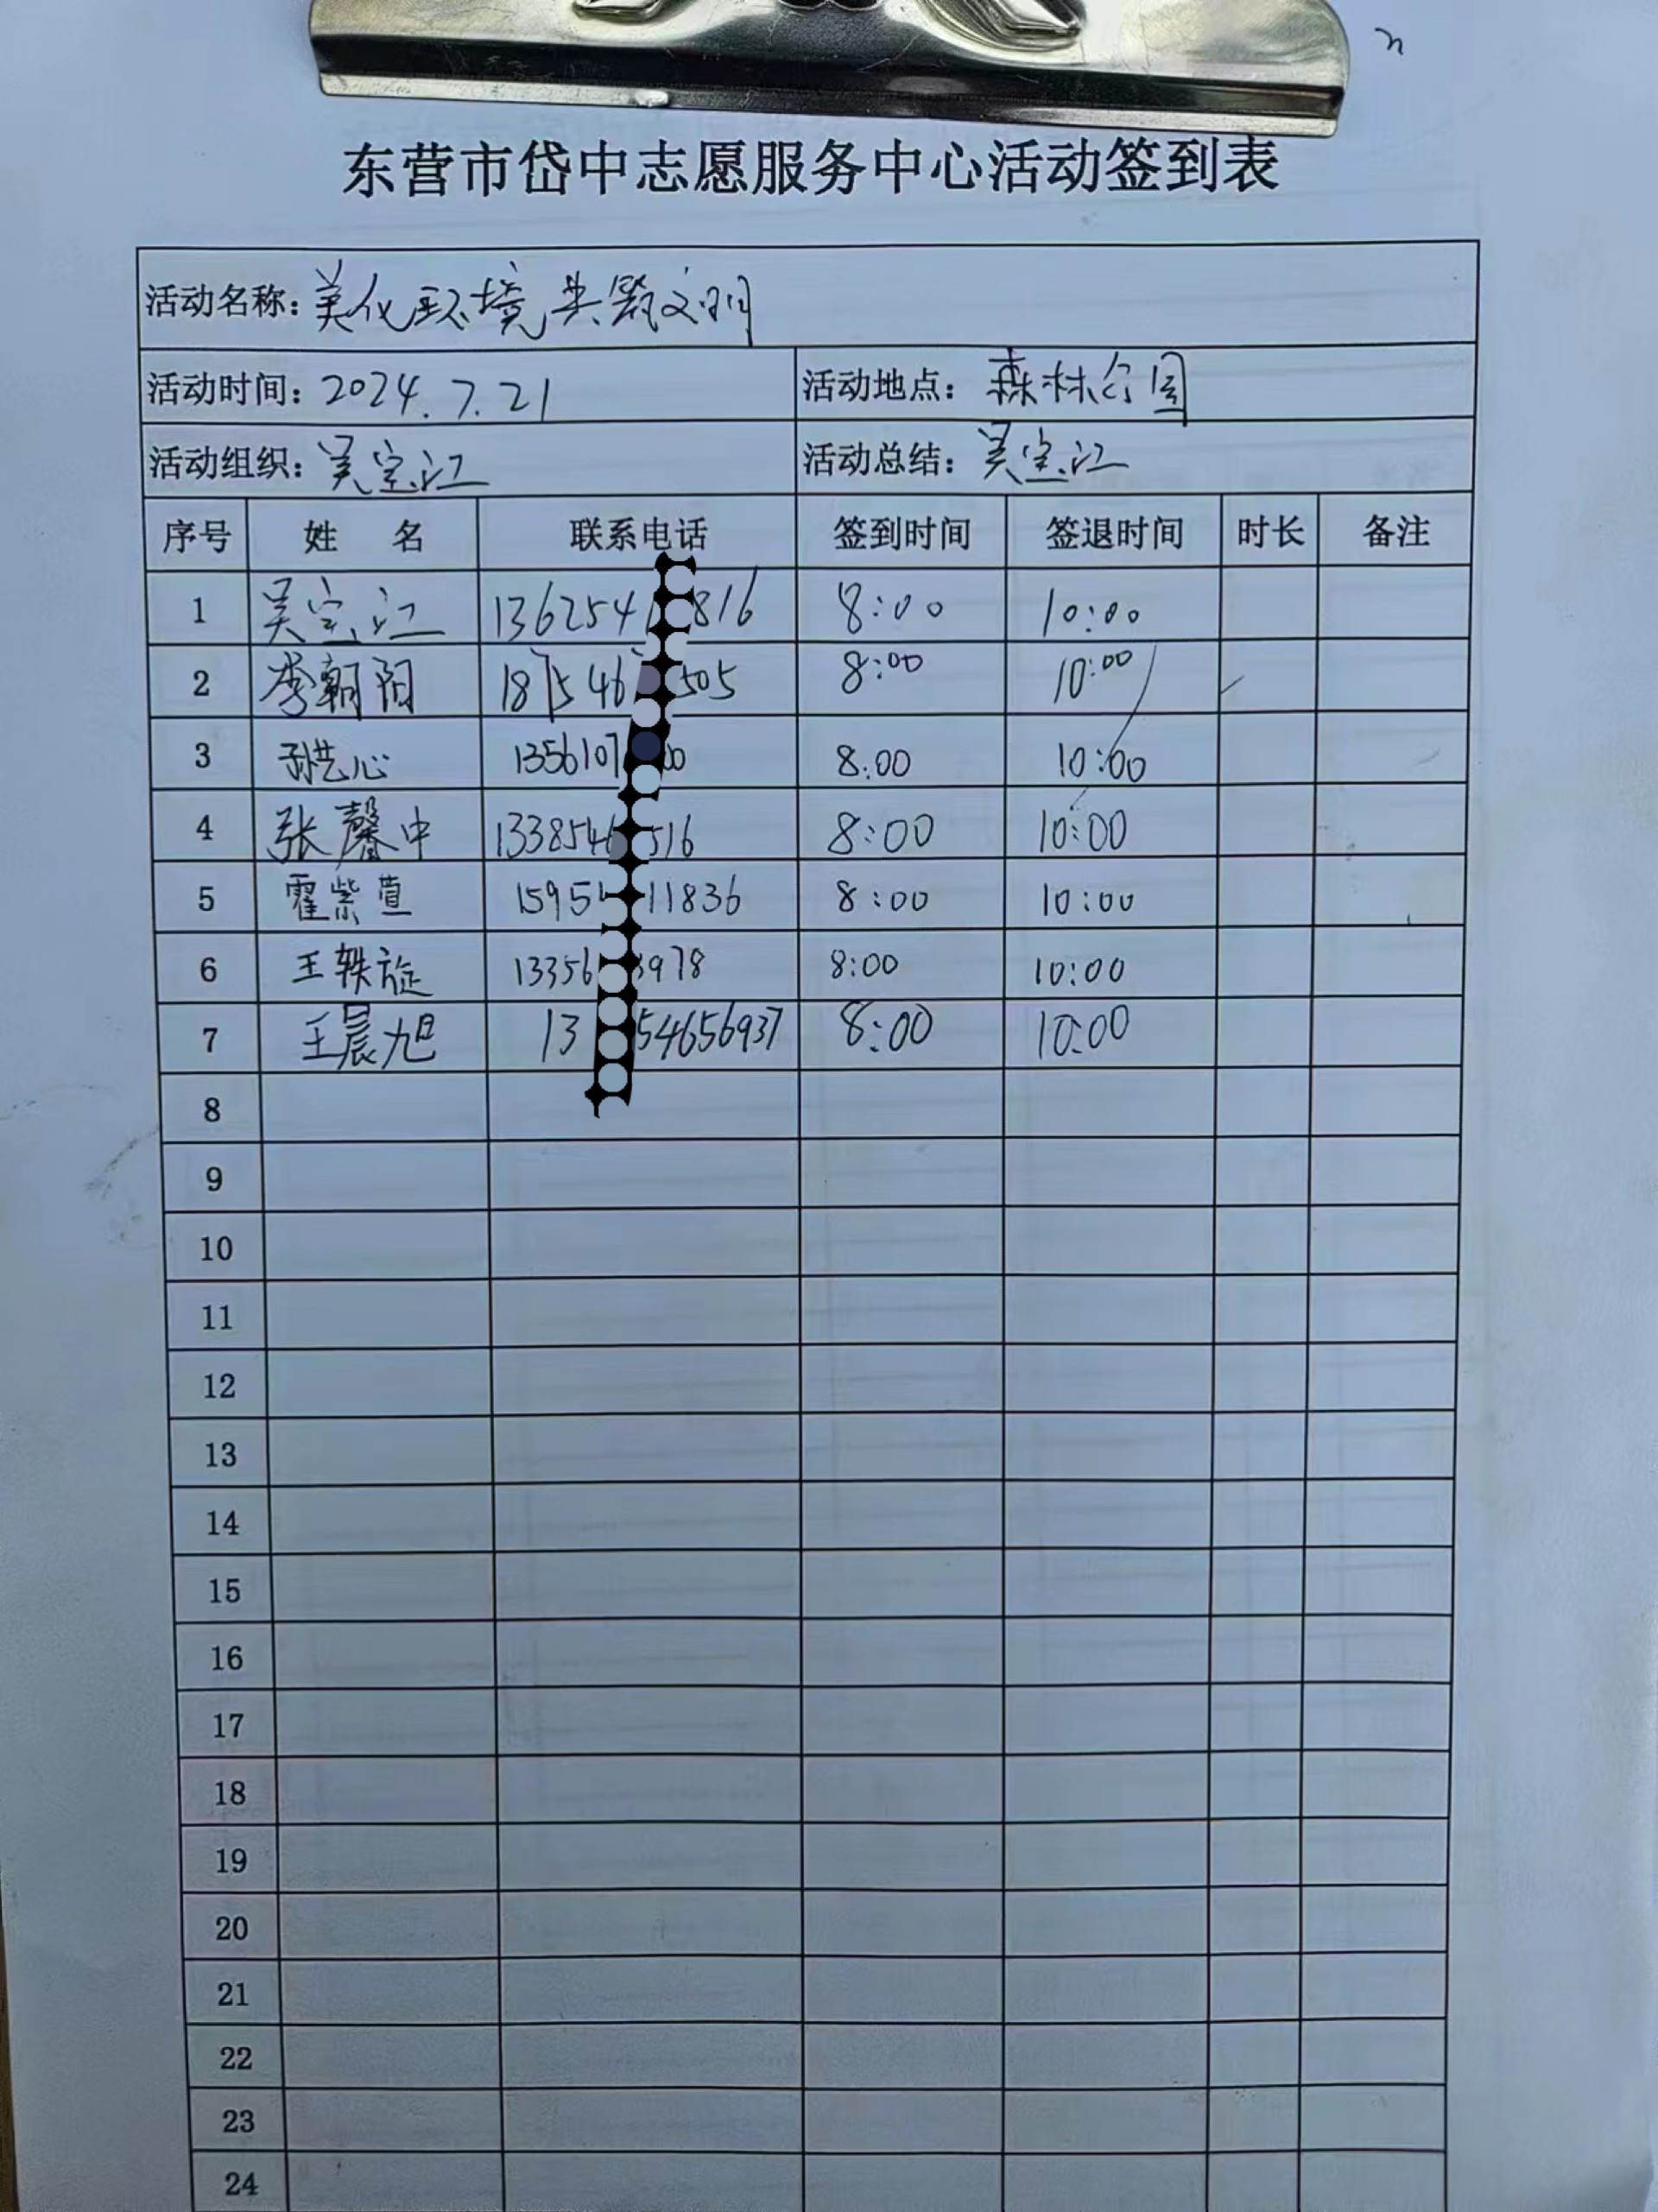 东营市岱中志愿服务中心活动签到表
活动名称：美化环境 共界文明
活动时间：2024.7.21 活动地点：森林公园
活动组织：吴宝江 活动总结：吴宝江
序号 姓 名 联系电话 签到时间 签退时间 时长 备注
1 吴宝江 136254 816 8:00 10:00
2 李朝阳 1875 46 505 8:00 10:00
3 孙艺心 1356107 00 8.00 10:00
4 张馨中 1338546 516 8:00 10:00
5 霍紫萱 1595 11836 8:00 10:00
6 王轶旋 13356 3978 8:00 10:00
7 王晨旭 13 54656937 8:00 10:00
8
9
10
11
12
13
14
15
16
17
18
19
20
21
22
23
24